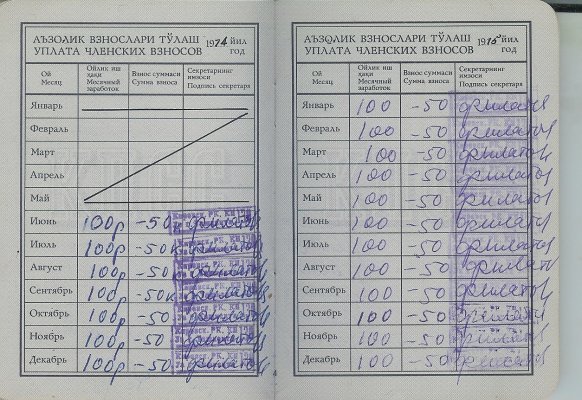 АЪЗОЛИК ВЗНОСЛАРИ ТЎЛАШ
УПЛАТА ЧЛЕНСКИХ ВЗНОСОВ
1974 ЙИЛ
ГОД
Ой
Месяц
Ойлик иш
ҳақи
Месячный
заработок
Взнос суммаси
Сумма взноса
Секретарнинг
имзоси
Подпись секретаря
Январь
Февраль
Март
Апрель
Май
Июнь 100р -50к
Июль 100р -50к
Август 100р -50к
Сентябрь 100р -50к
Октябрь 100р -50
Ноябрь 100р -50
Декабрь 100р -50
АЪЗОЛИК ВЗНОСЛАРИ ТЎЛАШ
УПЛАТА ЧЛЕНСКИХ ВЗНОСОВ
1975 ЙИЛ
ГОД
Ой
Месяц
Ойлик иш
ҳақи
Месячный
заработок
Взнос суммаси
Сумма взноса
Секретарнинг
имзоси
Подпись секретаря
Январь 100 -50
Февраль 100 -50
Март 100 -50
Апрель 100 -50
Май 100 -50
Июнь 100 -50
Июль 100 -50
Август 100 -50
Сентябрь 100 -50
Октябрь 100 -50
Ноябрь 100 -50
Декабрь 100 -50